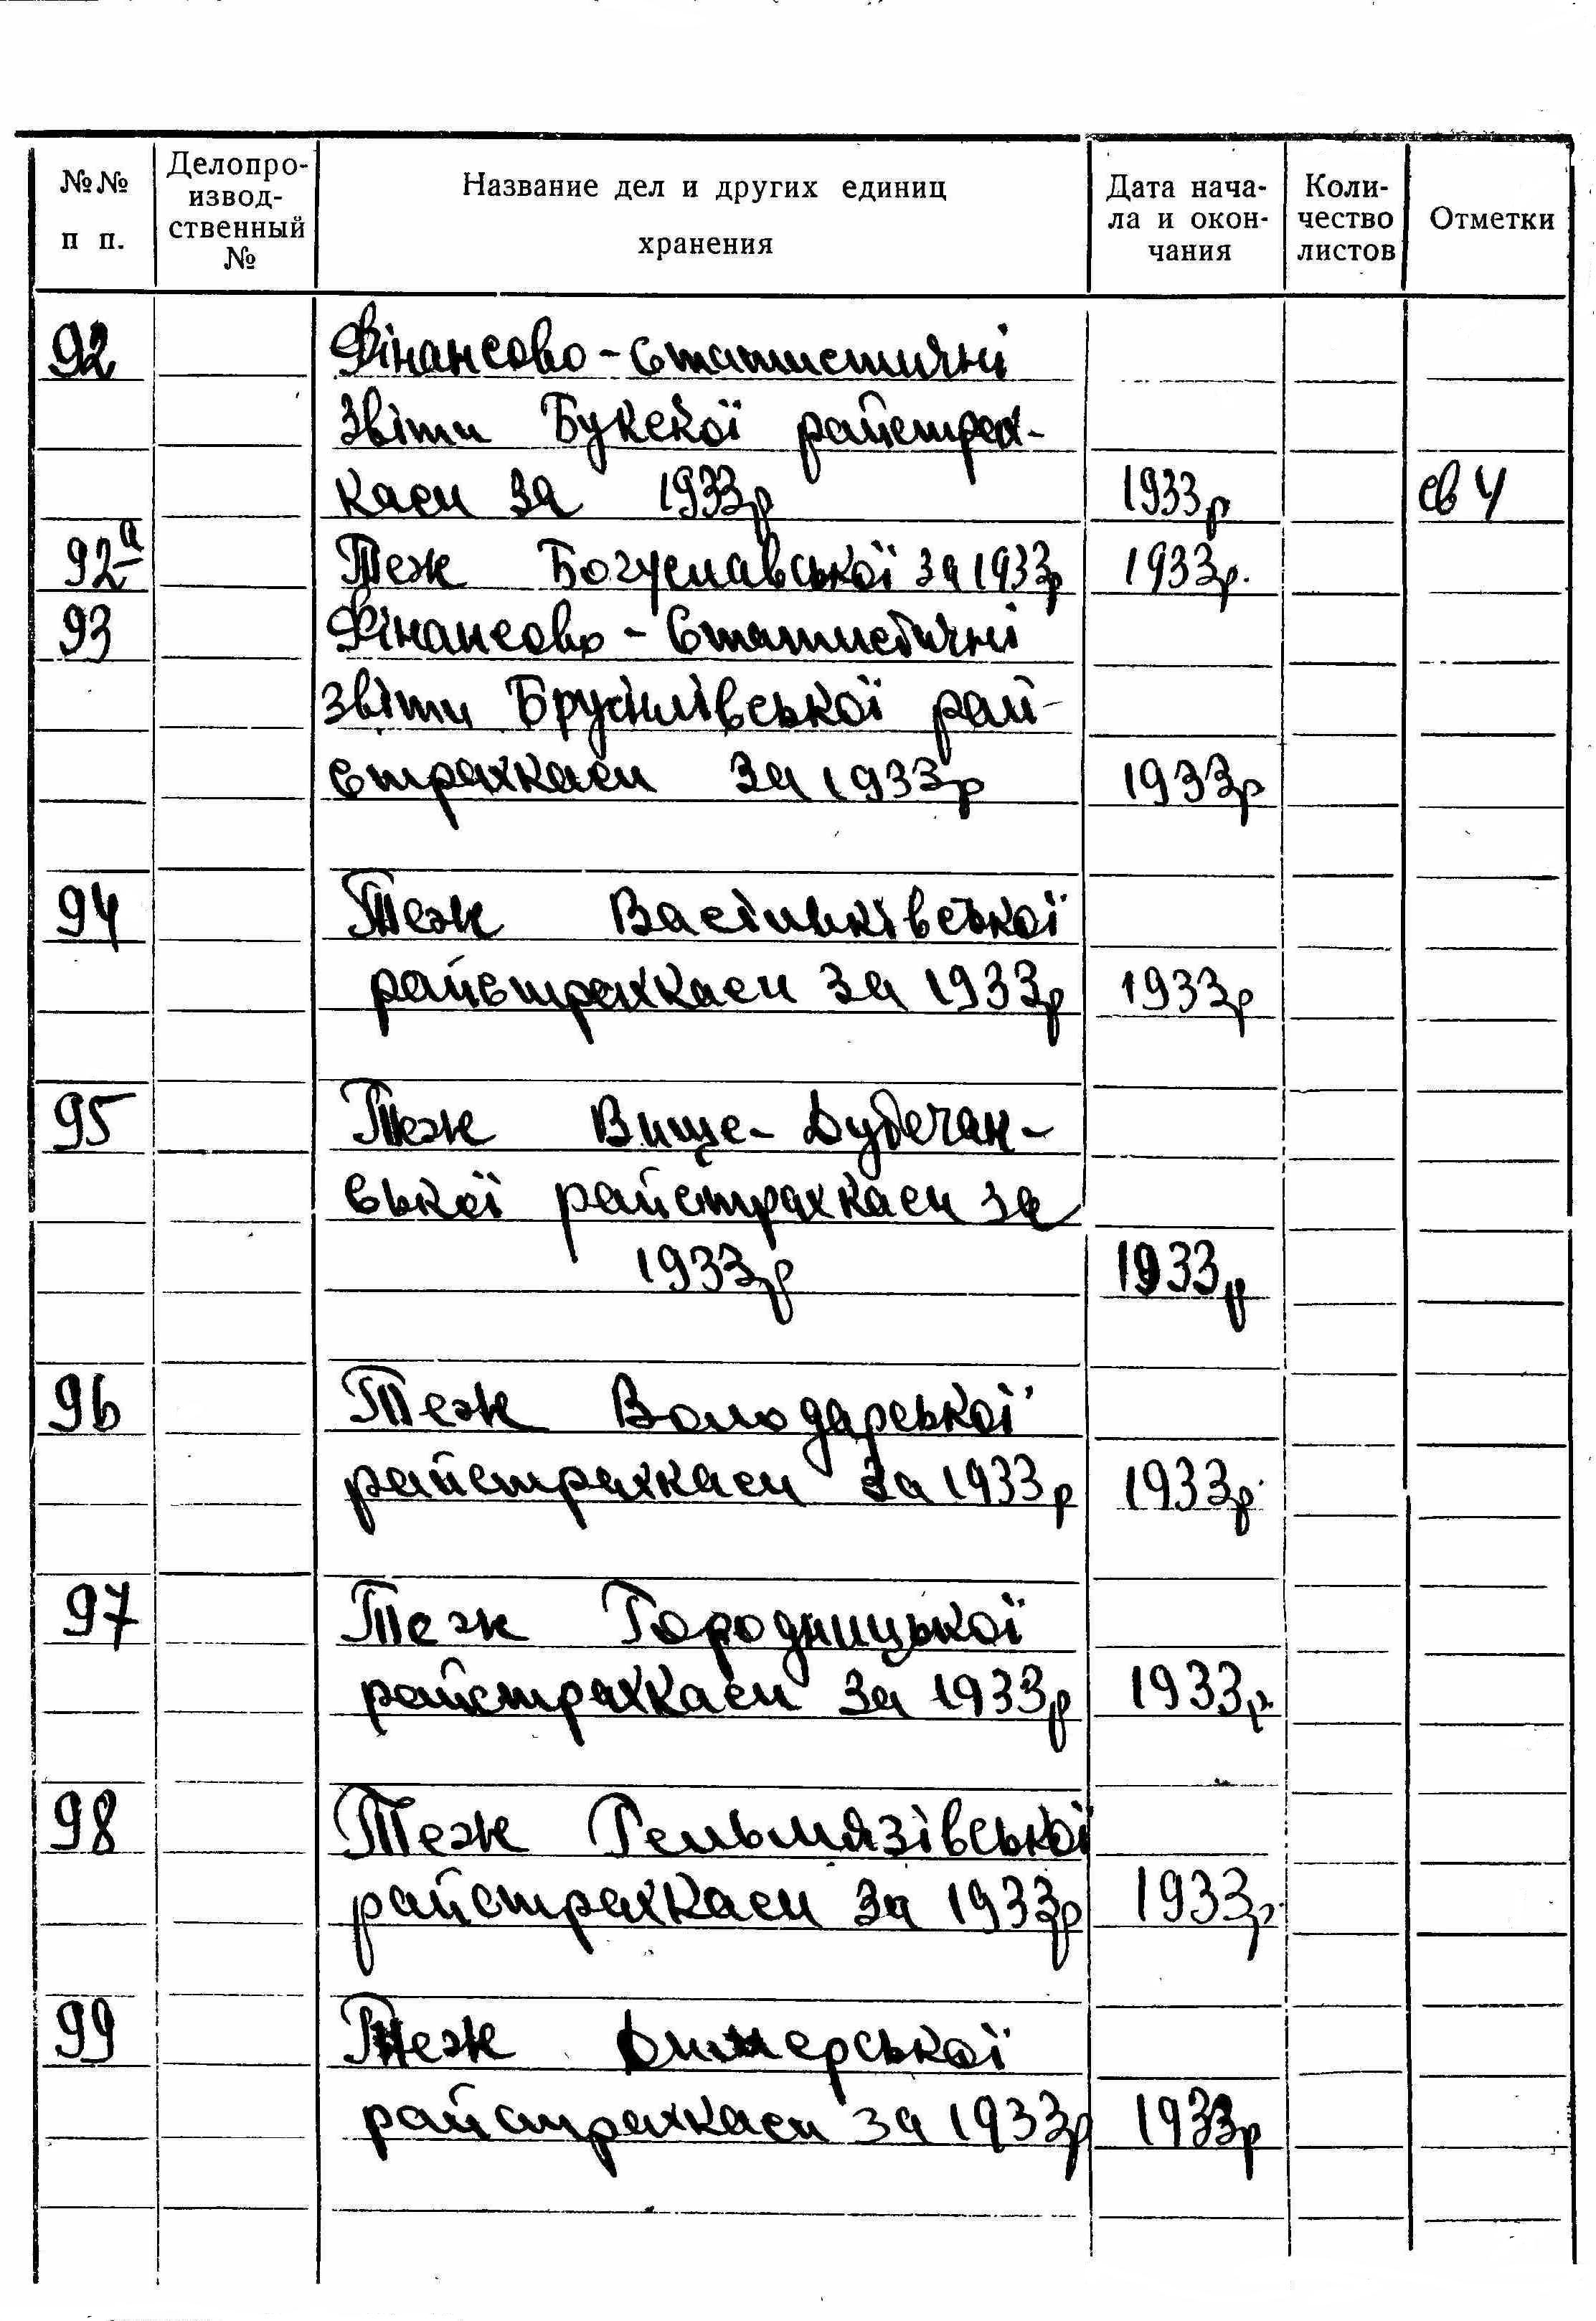 №№ п п.
Делопро-
извод-
ственный
№
Название дел и других единиц
хранения
Дата нача-
ла и окон-
чания
Коли-
чество
листов
Отметки
92 Фінансово-статистичні
звіти Букської райстрах-
каси за 1933р 1933р св 4
92а Теж Богуславської за 1933р 1933р.
93 Фінансово-Статистичні
звіти Брусилівської рай-
страхкаси за 1933р 1933р
94 Теж Васильківської
райстрахкаси за 1933р 1933р
95 Теж Вище-Дубечан-
ської райстрахкаси за
1933р 1933р
96 Теж Володарської
райстрахкаси за 1933р 1933р.
97 Теж Городницької
райстрахкаси за 1933р 1933р.
98 Теж Гельмязівської
райстрахкаси за 1933р 1933р.
99 Теж Димерської
райстрахкаси за 1933р 1933р